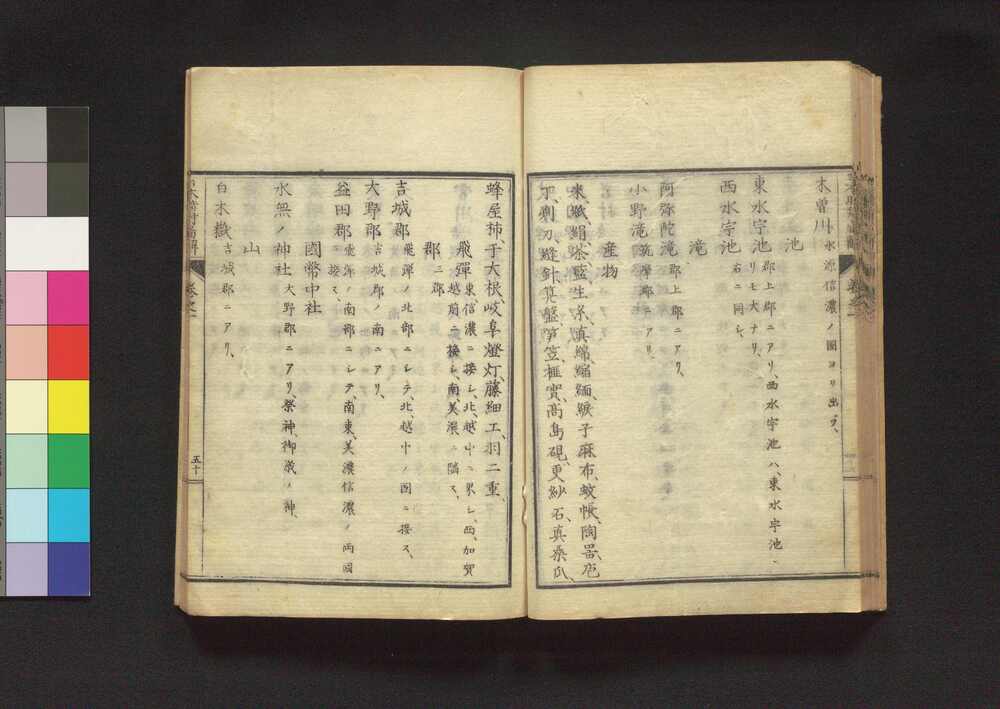 木曽川 水源信濃ノ國ヨリ出ヅ、
池
東水宇池 郡上郡ニアリ、西水宇池ハ、東水宇池
ヨリモ大ナリ、
西水宇池 右ニ同シ、
滝
阿弥陀滝 郡上郡ニアリ、
小野滝 筑摩郡ニアリ、
産物
米、紙、絹、茶、藍、生糸、真綿、縮緬、繇子、麻布、蚊帳、陶器、庖
丁、剃刀、縫針、算盤、笋笠、榧實、高島硯、更紗石、真桑瓜、
蜂屋柿、干大根、岐阜燈灯、藤細工、羽二重、
飛彈 東、信濃ニ接シ、北、越中ニ界シ、西、加賀
越前ニ接シ、南、美濃ニ隣ス、
郡 三郡
吉城郡 飛彈ノ北部ニシテ、北、越中ノ國ニ接ス、
大野郡 吉城郡ノ南ニアリ、
益田郡 飛彈ノ南部ニシテ、南東、美濃信濃ノ両國
ニ接ス、
國幣中社
水無ノ神社 大野郡ニアリ、祭神、御歳ノ神、
山
白木嶽 吉城郡ニアリ、
卷之一
五十